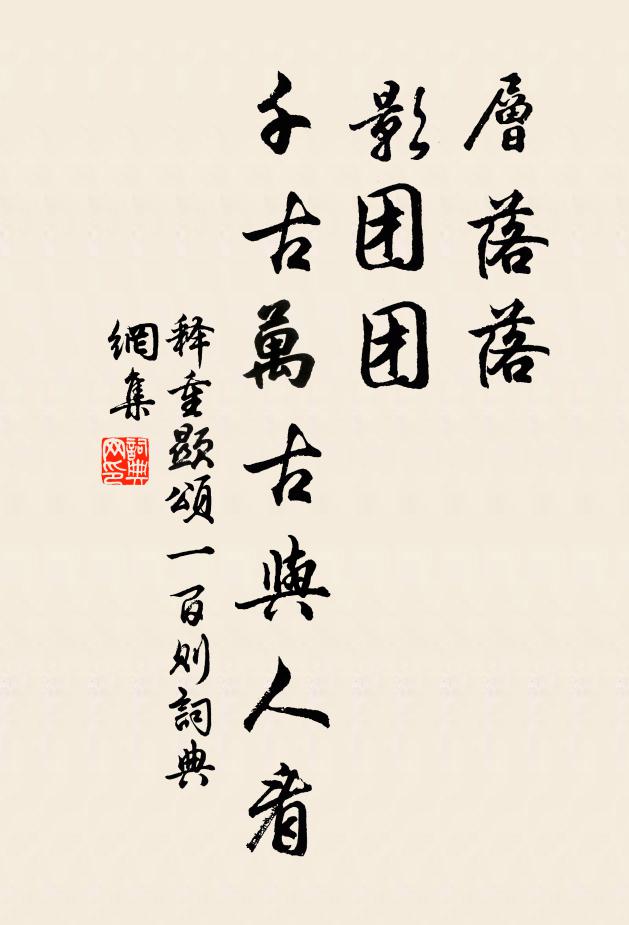 層落落
影团团
千古萬古與人看
释重顯頌一百则詞典
網集
詞典
网印